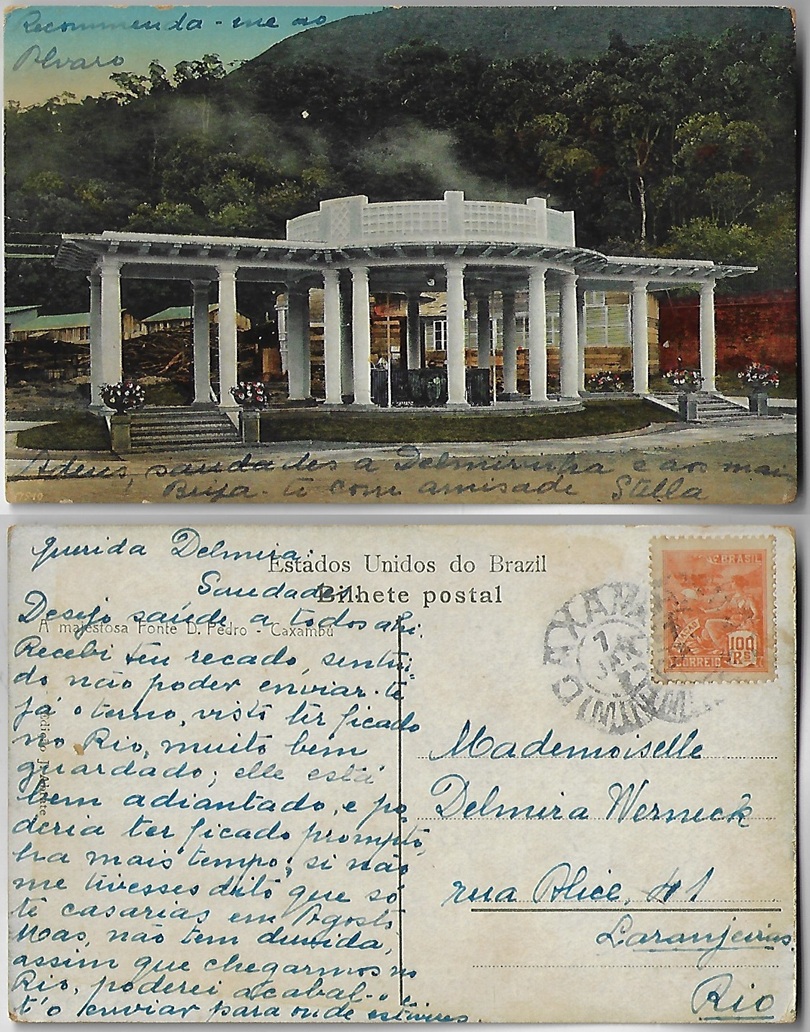 Recommenda-me ao
Alvaro
Adeus, saudades a Delmirinha e aos mais
Beija-te com amisade Stella
Estados Unidos do Brazil
Bilhete postal
A majestosa Fonte D. Pedro - Caxambú
Querida Delmira:
Saudades.
Desejo saúde a todos ahi.
Recebi teu recado, sentin-
do não poder enviar-te
já o terno, visto ter ficado
no Rio, muito bem
guardado; elle está
bem adiantado, e po
deria ter ficado prompto,
ha mais tempo, si não
me tivesses dito que só
te casarias em Agosto
Mas, não tem duvida,
assim que chegarmos no
Rio, poderei acabal-o e
t'o enviar para onde estiveres.
BRASIL
100
RS
CORREIO
CAXAMBU
7
JAN
Mademoiselle
Delmira Werneck
rua Alice, 41
Laranjeiras
Rio